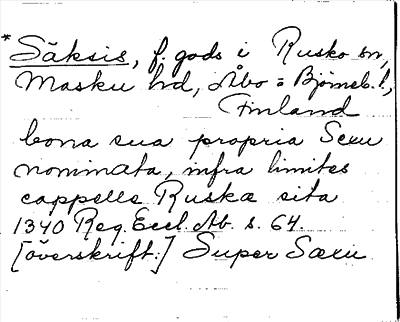 * Säksis, f. gods i Rusko sn,
Masku hd, Åbo = Björneb. l.,
Finland
bona sua propria Sexu
nominata, infra limites
cappelle Ruska sita
1340 Reg. Eccl. Ab. s. 64.
[överskrift:] Super Saxu